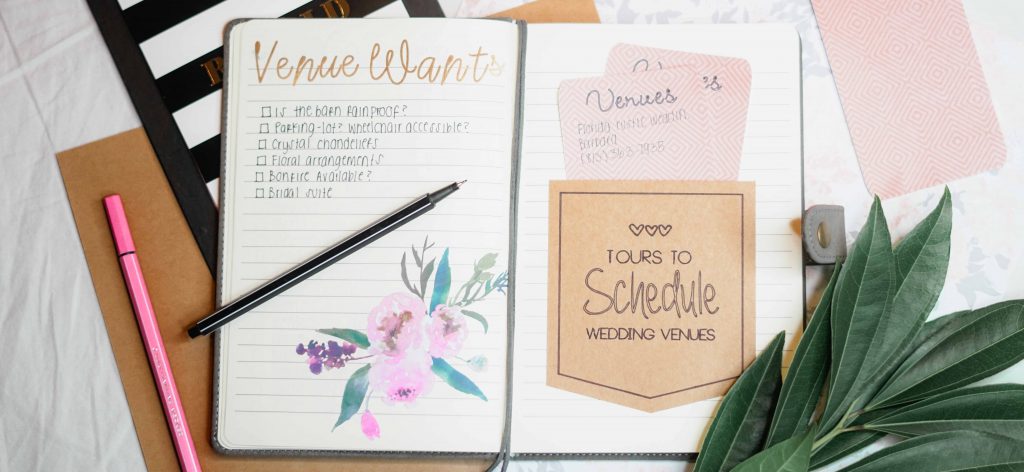 Venue Wants
Is the barn rainproof?
Parking-lot? Wheelchair accessible?
Crystal chandeliers
Floral arrangements
Bonfire Available?
Bridal suite
Venues 's
Florida rustic
Barbara
(813) 363-7935
TOURS TO
Schedule
WEDDING VENUES